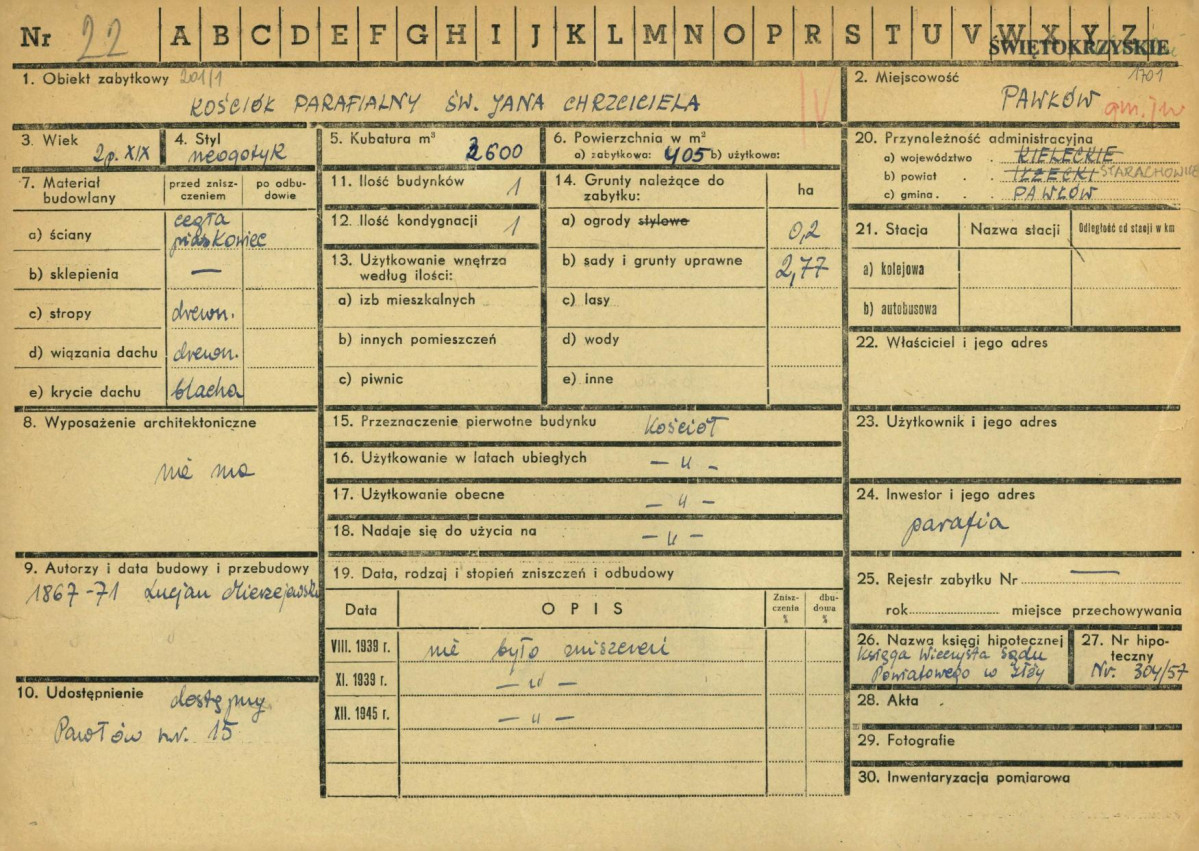 Nr 22 A B C D E F G H I J K L M N O P R S T U V W X Y Z
ŚWIĘTOKRZYSKIE
1. Obiekt zabytkowy 201/1
KOŚCIÓŁ PARAFIALNY ŚW. JANA CHRZCICIELA
IV
2. Miejscowość 1701
PAWŁÓW
gm. jw
3. Wiek
2p. XIX
4. Styl
neogotyk
5. Kubatura m³
2600
6. Powierzchnia w m²
a) zabytkowa: 405 b) użytkowa:
7. Materiał budowlany
przed zniszczeniem
po odbudowie
a) ściany cegła piaskowiec
b) sklepienia —
c) stropy drewn.
d) wiązania dachu drewn.
e) krycie dachu blacha
8. Wyposażenie architektoniczne
nie ma
9. Autorzy i data budowy i przebudowy
1867-71 Lucjan Mierzejewski
10. Udostępnienie dostępny
Pawłów nr. 15
11. Ilość budynków 1
12. Ilość kondygnacji 1
13. Użytkowanie wnętrza
według ilości:
a) izb mieszkalnych
b) innych pomieszczeń
c) piwnic
14. Grunty należące do
zabytku:
ha
a) ogrody stylowe 0,2
b) sady i grunty uprawne 2,77
c) lasy
d) wody
e) inne
15. Przeznaczenie pierwotne budynku kościół
16. Użytkowanie w latach ubiegłych — " —
17. Użytkowanie obecne — " —
18. Nadaje się do użycia na — " —
19. Data, rodzaj i stopień zniszczeń i odbudowy
Data OPIS Zniszczenia % dbudowa %
VIII. 1939 r. nie było zniszczeń
XI. 1939 r. — " —
XII. 1945 r. — " —
20. Przynależność administracyjna
a) województwo . KIELECKIE
b) powiat . . IŁŻECKI STARACHOWICE
c) gmina . . PAWŁÓW
21. Stacja Nazwa stacji Odległość od stacji w km
a) kolejowa
b) autobusowa
22. Właściciel i jego adres
23. Użytkownik i jego adres
24. Inwestor i jego adres
parafia
25. Rejestr zabytku Nr —
rok miejsce przechowywania
26. Nazwa księgi hipotecznej
Księga Wieczysta Sądu
Powiatowego w Iłży
27. Nr hipoteczny
Nr. 304/57
28. Akta
29. Fotografie
30. Inwentaryzacja pomiarowa